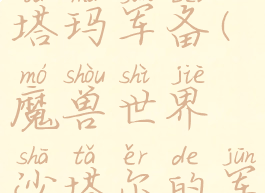 塔玛军备(
mó shòu shì jiè
魔兽世界
shā tǎ ěr de jūn
沙塔尔的军